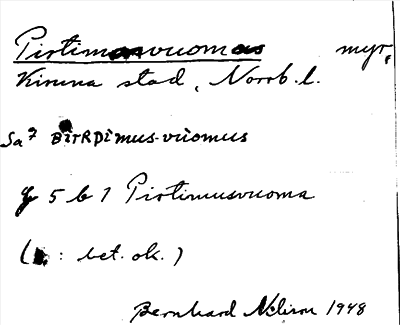 Pirtimusvuomus myr,
Kiruna stad, Norrb. l.
Sa? BirRDimus-vuomus
5 b 1 Pirtimusvuoma
( : bet. ok. )
Bernhard Nelson 1948